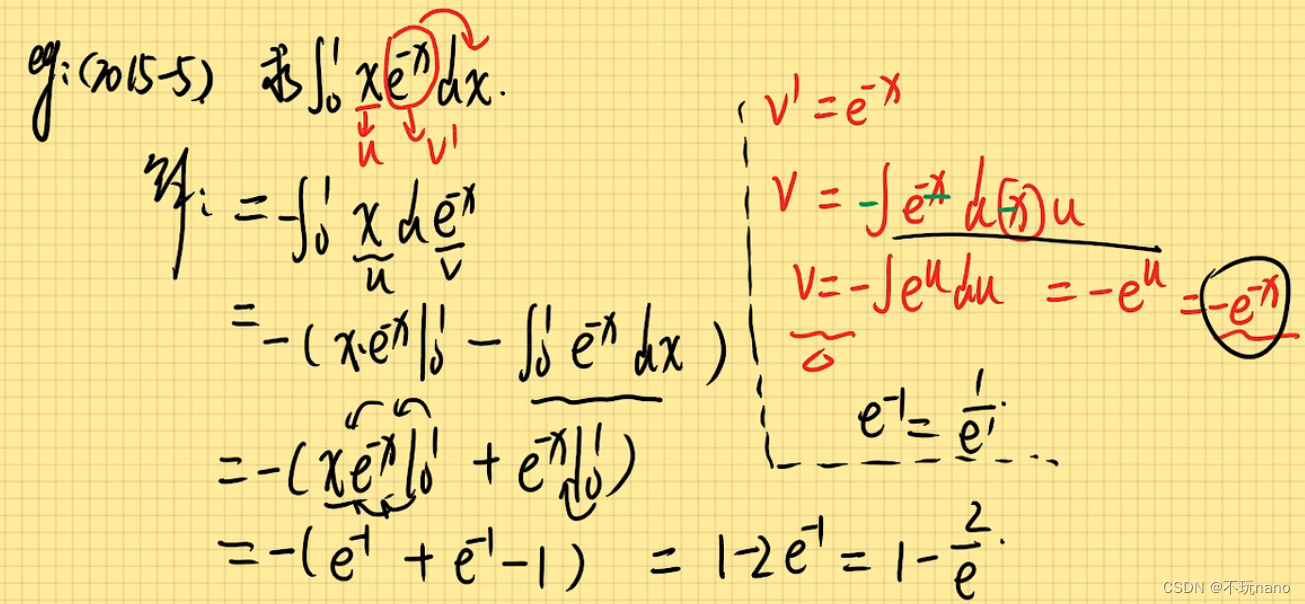 eg:(2015-5) 求∫₀¹ xe⁻ˣdx.
u v'
解: = -∫₀¹ x de⁻ˣ
u v
= -(x·e⁻ˣ|₀¹ - ∫₀¹ e⁻ˣ dx)
= -(xe⁻ˣ|₀¹ + e⁻ˣ|₀¹)
= -(e⁻¹ + e⁻¹ - 1) = 1-2e⁻¹ = 1 - 2/e.
v' = e⁻ˣ
v = -∫e⁻ˣ d(-x) u
v = -∫eᵘdu = -eᵘ = -e⁻ˣ
e⁻¹ = 1/e¹.
CSDN @不玩nano